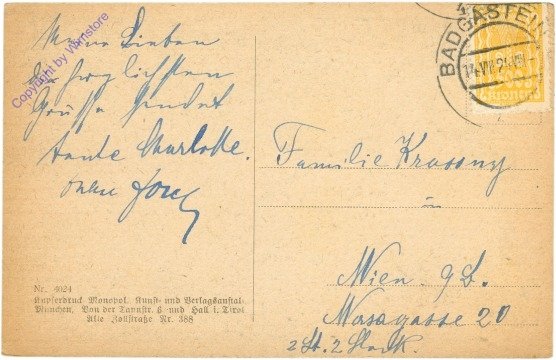 Meine Lieben
die herzlichsten
Grüsse sendet
tante Charlotte.
Familie Krassny
in
Wien. 9 B.
Wasagasse 20
2 St. 2 Stock.
BADGASTEIN
Kronen
Copyright by Wiinstore
Nr. 4024
Kupferdruck Monopol. Kunst- und Verlagsanstalt
München. Von der Tannstr. 6 und Hall i. Tirol
Alte Zollstraße Nr. 388